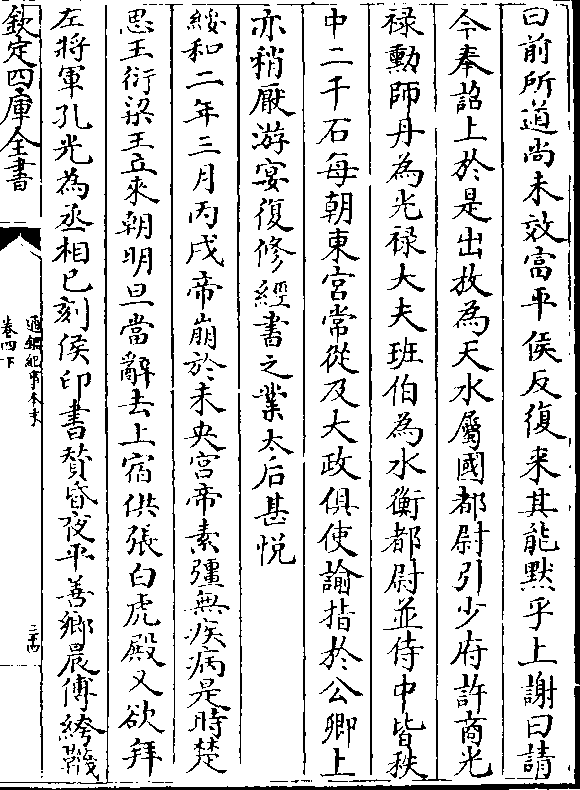 曰前所道尚未效富平侯反復来其能黙乎上謝曰請
今奉詔上於是出放為天水屬國都尉引少府許商光
禄勲師丹為光禄大夫班伯為水衡都尉並侍中皆秩
中二千石每朝東宫常從及大政俱使諭指於公卿上
亦稍厭游宴復修經書之業太后甚悦
綏和二年三月丙戌帝崩於未央宫帝素彊無疾病是時楚
思王衍梁王立來朝明旦當辭去上宿供張白虎殿又欲拜
左將軍孔光為丞相已刻侯印書賛昏夜平善鄉晨傅絝韈
欽定四庫全書
通鑑紀事本末
卷四下
二十四